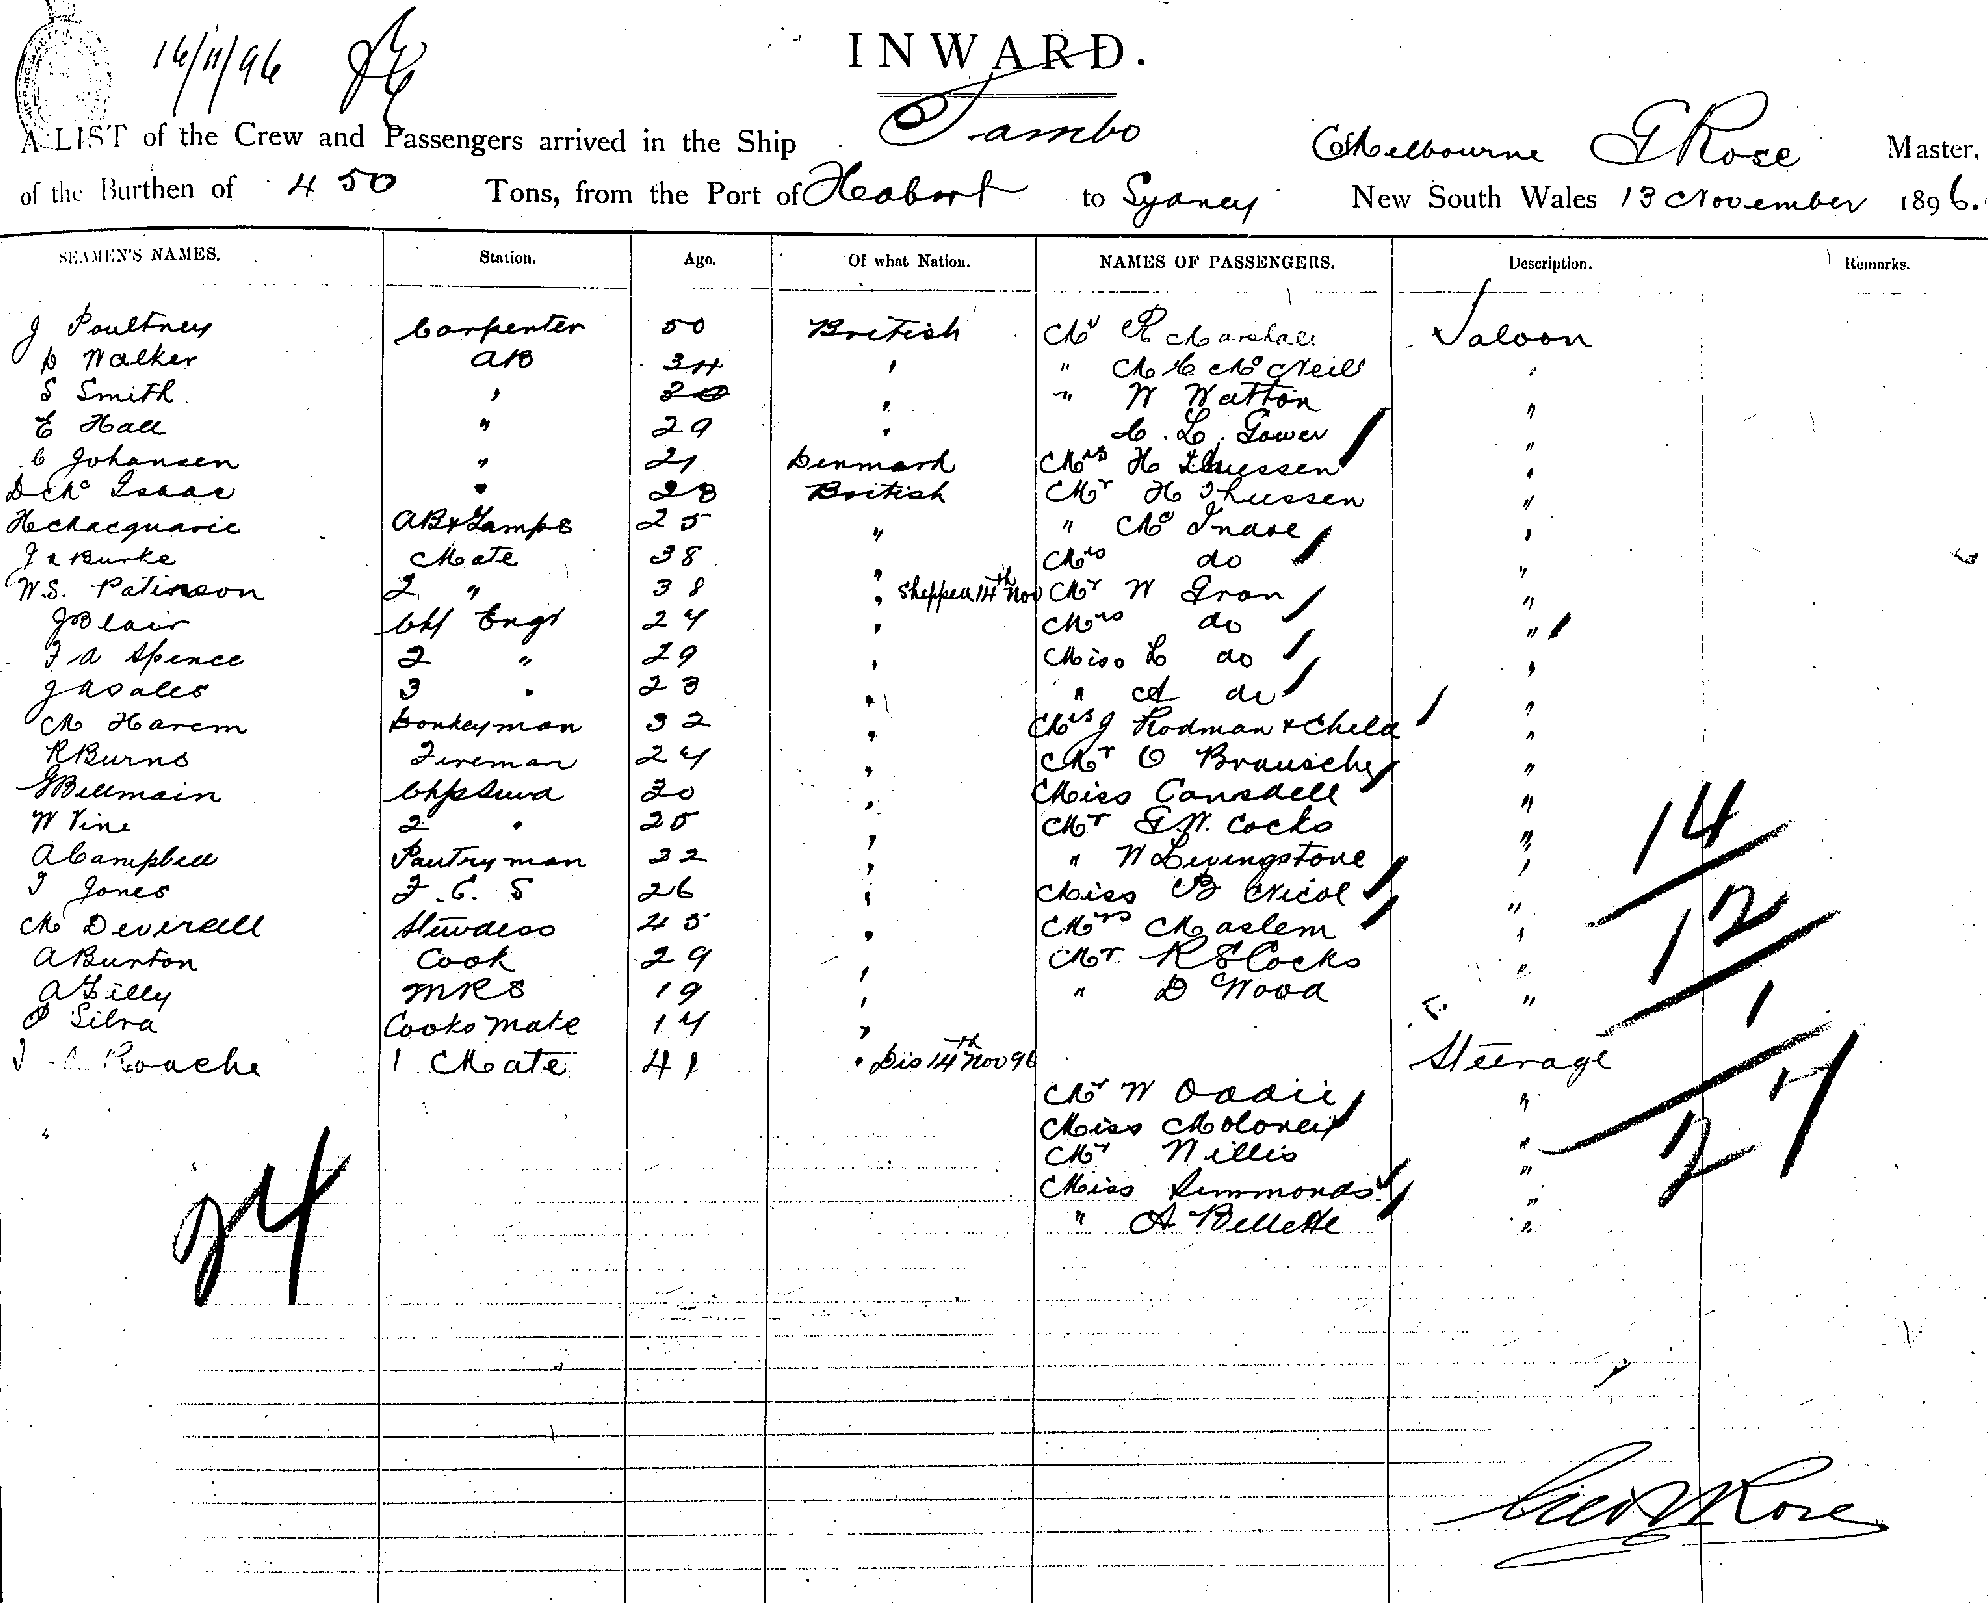 16/11/96
INWARD.
A LIST of the Crew and Passengers arrived in the Ship Tambo Melbourne G Rose Master,
of the Burthen of 450 Tons, from the Port of Hobart to Sydney New South Wales 13 November 1896.
SEAMEN'S NAMES. Station. Age. Of what Nation. NAMES OF PASSENGERS. Description. Remarks.
J Poultney Carpenter 50 British Mr R Marshall Saloon
D Walker AB 34 " " McNeill "
S Smith " " " W Watton "
E Hall " 29 " C. L. Gower "
C Johansen " 21 Denmark Mrs H Thuessen "
D Mc Isaac " 28 British Mr H Thuessen "
H Macquarie AB & Lamps 25 " " "
Burke Mate 38 " Mrs do "
W.S. Patinson 2 " 38 " Shipped 14th Nov Mr W Gran "
J Blair Chf Engr 24 " Mrs do "
F A Spence 2 " 29 " Miss L do "
3 " 23 " " A do "
M Harem Donkeyman 32 " Mrs J Rodman & Child "
R Burns Fireman 24 " Mr O "
Chf Stwd 30 " Miss Cansdell "
W Vine 2 " 25 " Mr G.W. Cocks "
A Campbell Pantryman 32 " " W Livingstone "
T Jones F. C. S 26 " Miss B Nicol "
M Deverell Stewdess 45 " Mrs Maslem "
A Burton Cook 29 " Mr R S Cocks "
A Gilly MRS 19 " " D Wood "
Silva Cooks mate 14 "
Roache 1 Mate 41 " Dis 14th Nov 96 Steerage
Mr W Oddie "
Miss Moloney "
Mr Willis "
Miss Simmonds "
" A Bellette "
14
12
1
27
24
Geo W Rose